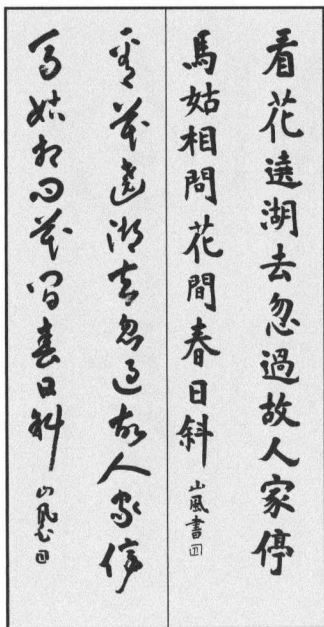 看花遶湖去忽過故人家停
馬姑相問花間春日斜
山風書
看花遶湖去忽過故人家停
馬姑相問花間春日斜
山風書